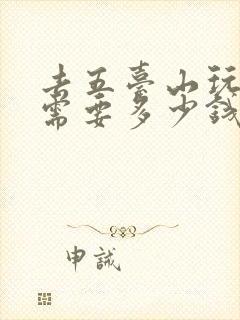 去五臺山玩
需要多少錢
申誠